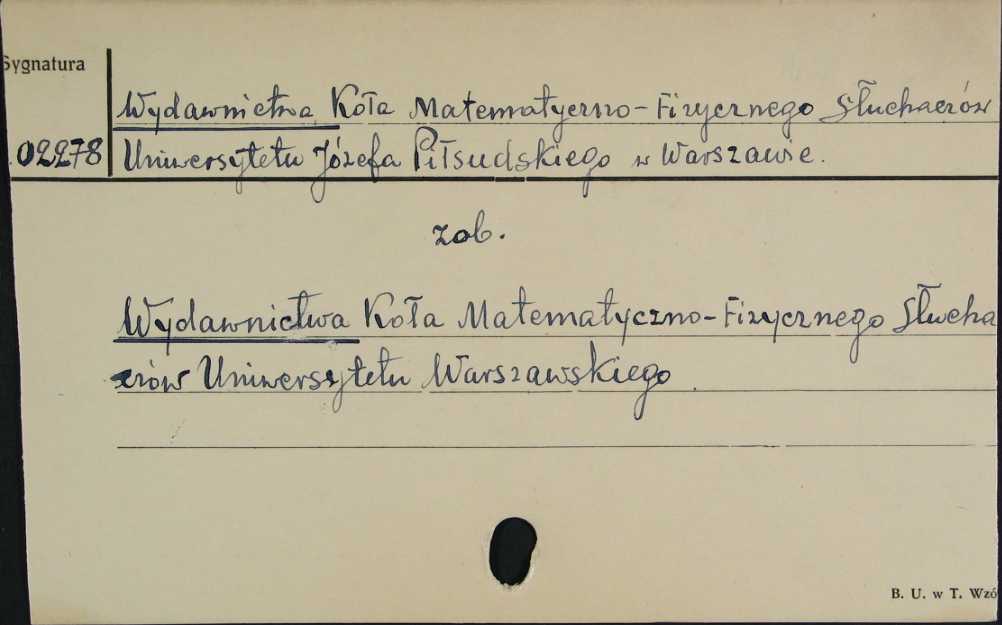 Sygnatura
Wydawnictwa Koła Matematyczno-Fizycznego Słuchaczów
02278 Uniwersytetu Józefa Piłsudskiego w Warszawie.
zob.
Wydawnictwa Koła Matematyczno-Fizycznego Słucha
czów Uniwersytetu Warszawskiego.
B. U. w T. Wzó